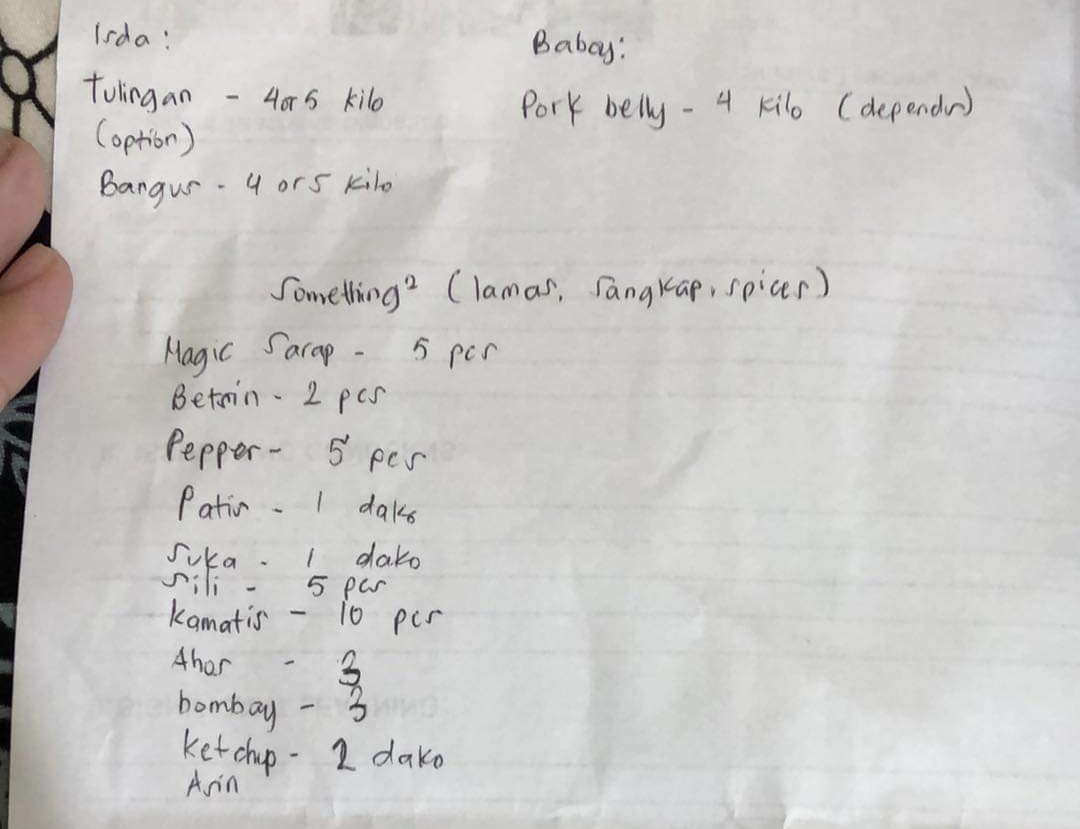 Isda:
Tulingan - 4 or 5 kilo
(option)
Bangus - 4 or 5 kilo
Baboy:
Pork belly - 4 kilo (dependin)
Something² (lamas, sangkap, spices)
Magic Sarap - 5 pcs
Betsin - 2 pcs
Pepper - 5 pcs
Patis - 1 dako
Suka - 1 dako
Sili - 5 pcs
Kamatis - 10 pcs
Ahos - 3
bombay - 3
Ketchup - 2 dako
Asin